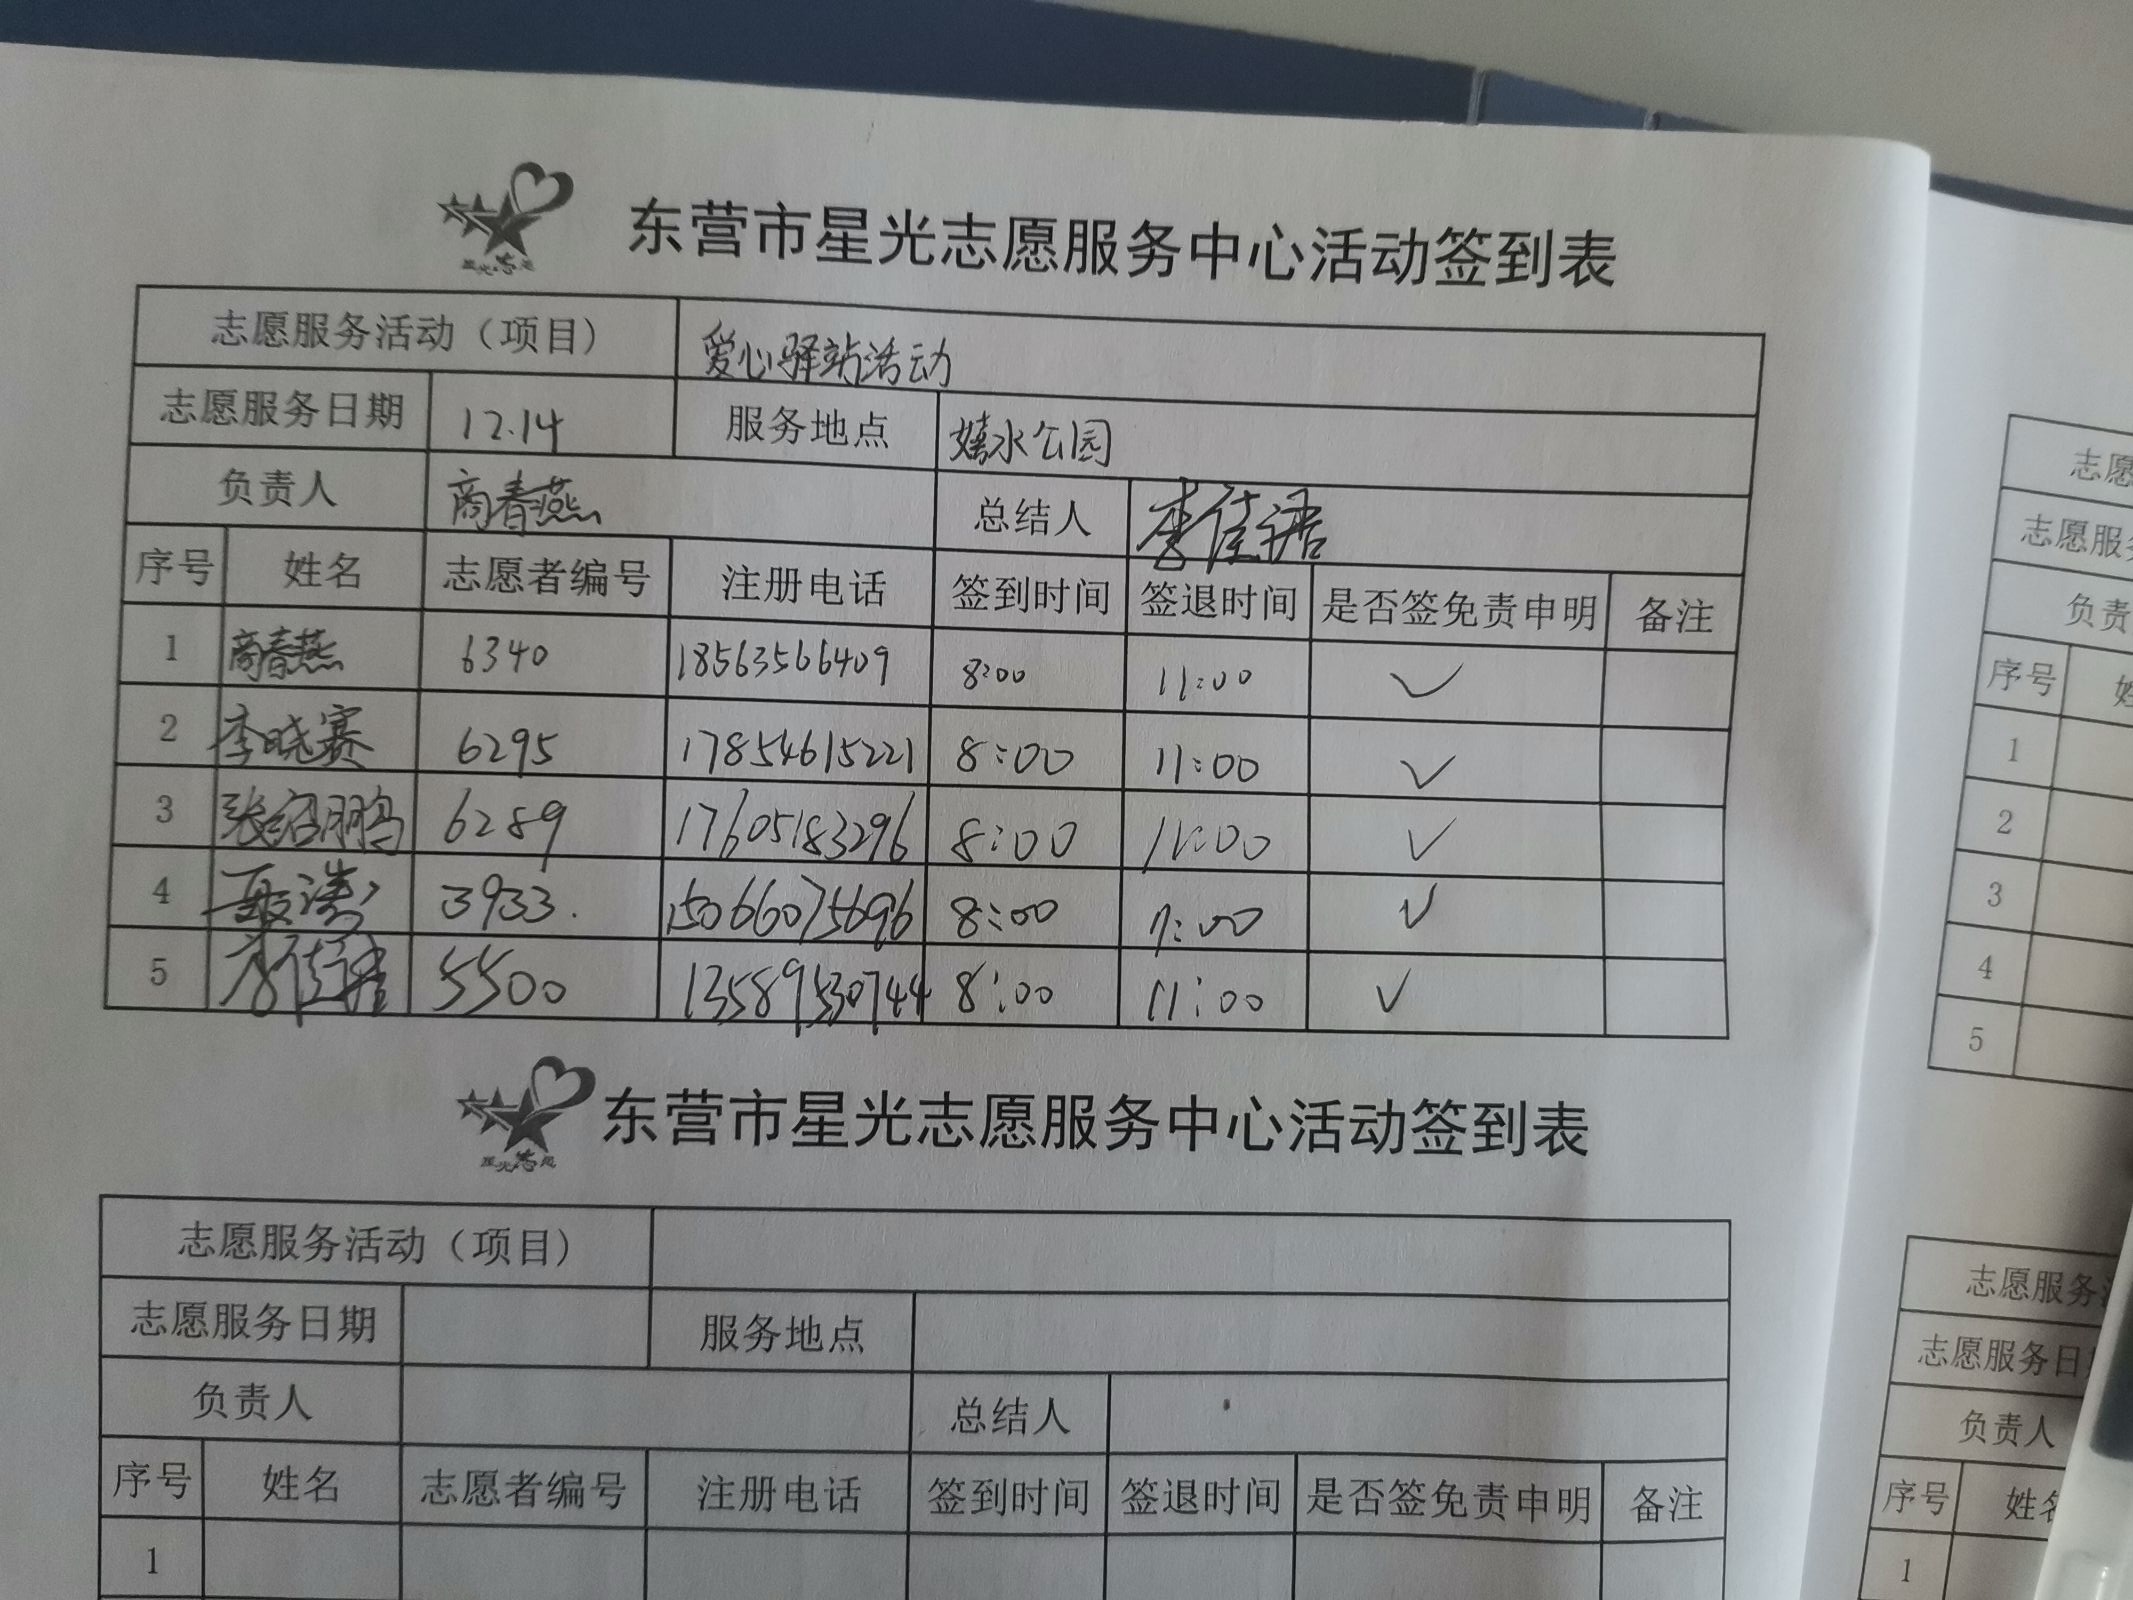 东营市星光志愿服务中心活动签到表
星光志愿
志愿服务活动（项目） 爱心驿站活动
志愿服务日期 12.14 服务地点 嬉水公园
负责人 商春燕 总结人 李佳语
序号 姓名 志愿者编号 注册电话 签到时间 签退时间 是否签免责申明 备注
1 商春燕 6340 18563566409 8:00 11:00 ✓
2 李晓赛 6295 17854615221 8:00 11:00 ✓
3 张绍鹏 6289 17605183296 8:00 11:00 ✓
4 聂涛 3933. 15066075696 8:00 11:00 ✓
5 5500 13589530744 8:00 11:00 ✓
东营市星光志愿服务中心活动签到表
星光志愿
志愿服务活动（项目）
志愿服务日期 服务地点
负责人 总结人
序号 姓名 志愿者编号 注册电话 签到时间 签退时间 是否签免责申明 备注
1
志愿
志愿服务
负责
序号 姓
1
2
3
4
5
志愿服务
志愿服务日
负责人
序号 姓名
1